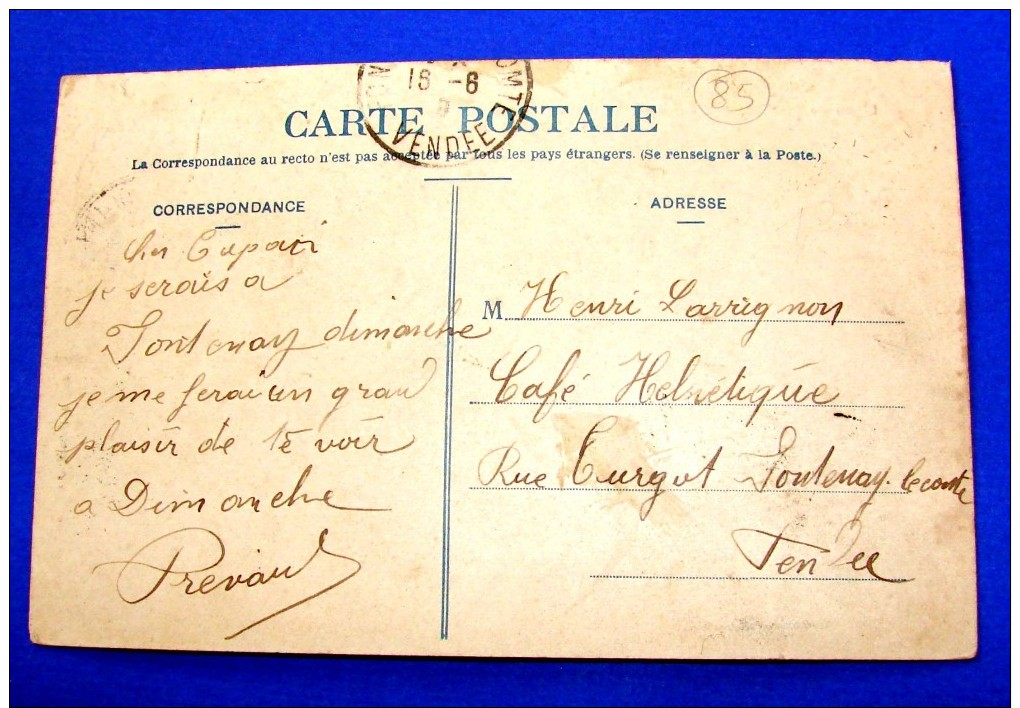 16 -6
OMTE
VENDEE
85
CARTE POSTALE
La Correspondance au recto n'est pas acceptée par tous les pays étrangers. (Se renseigner à la Poste.)
CORRESPONDANCE
Cher
je serais a
Fontenay dimanche
je me ferai un grand
plaisir de te voir
a Dimanche
ADRESSE
M. Henri Larrignon
Café Helvétique
Rue Turgot Fontenay-lecomte
Vendee